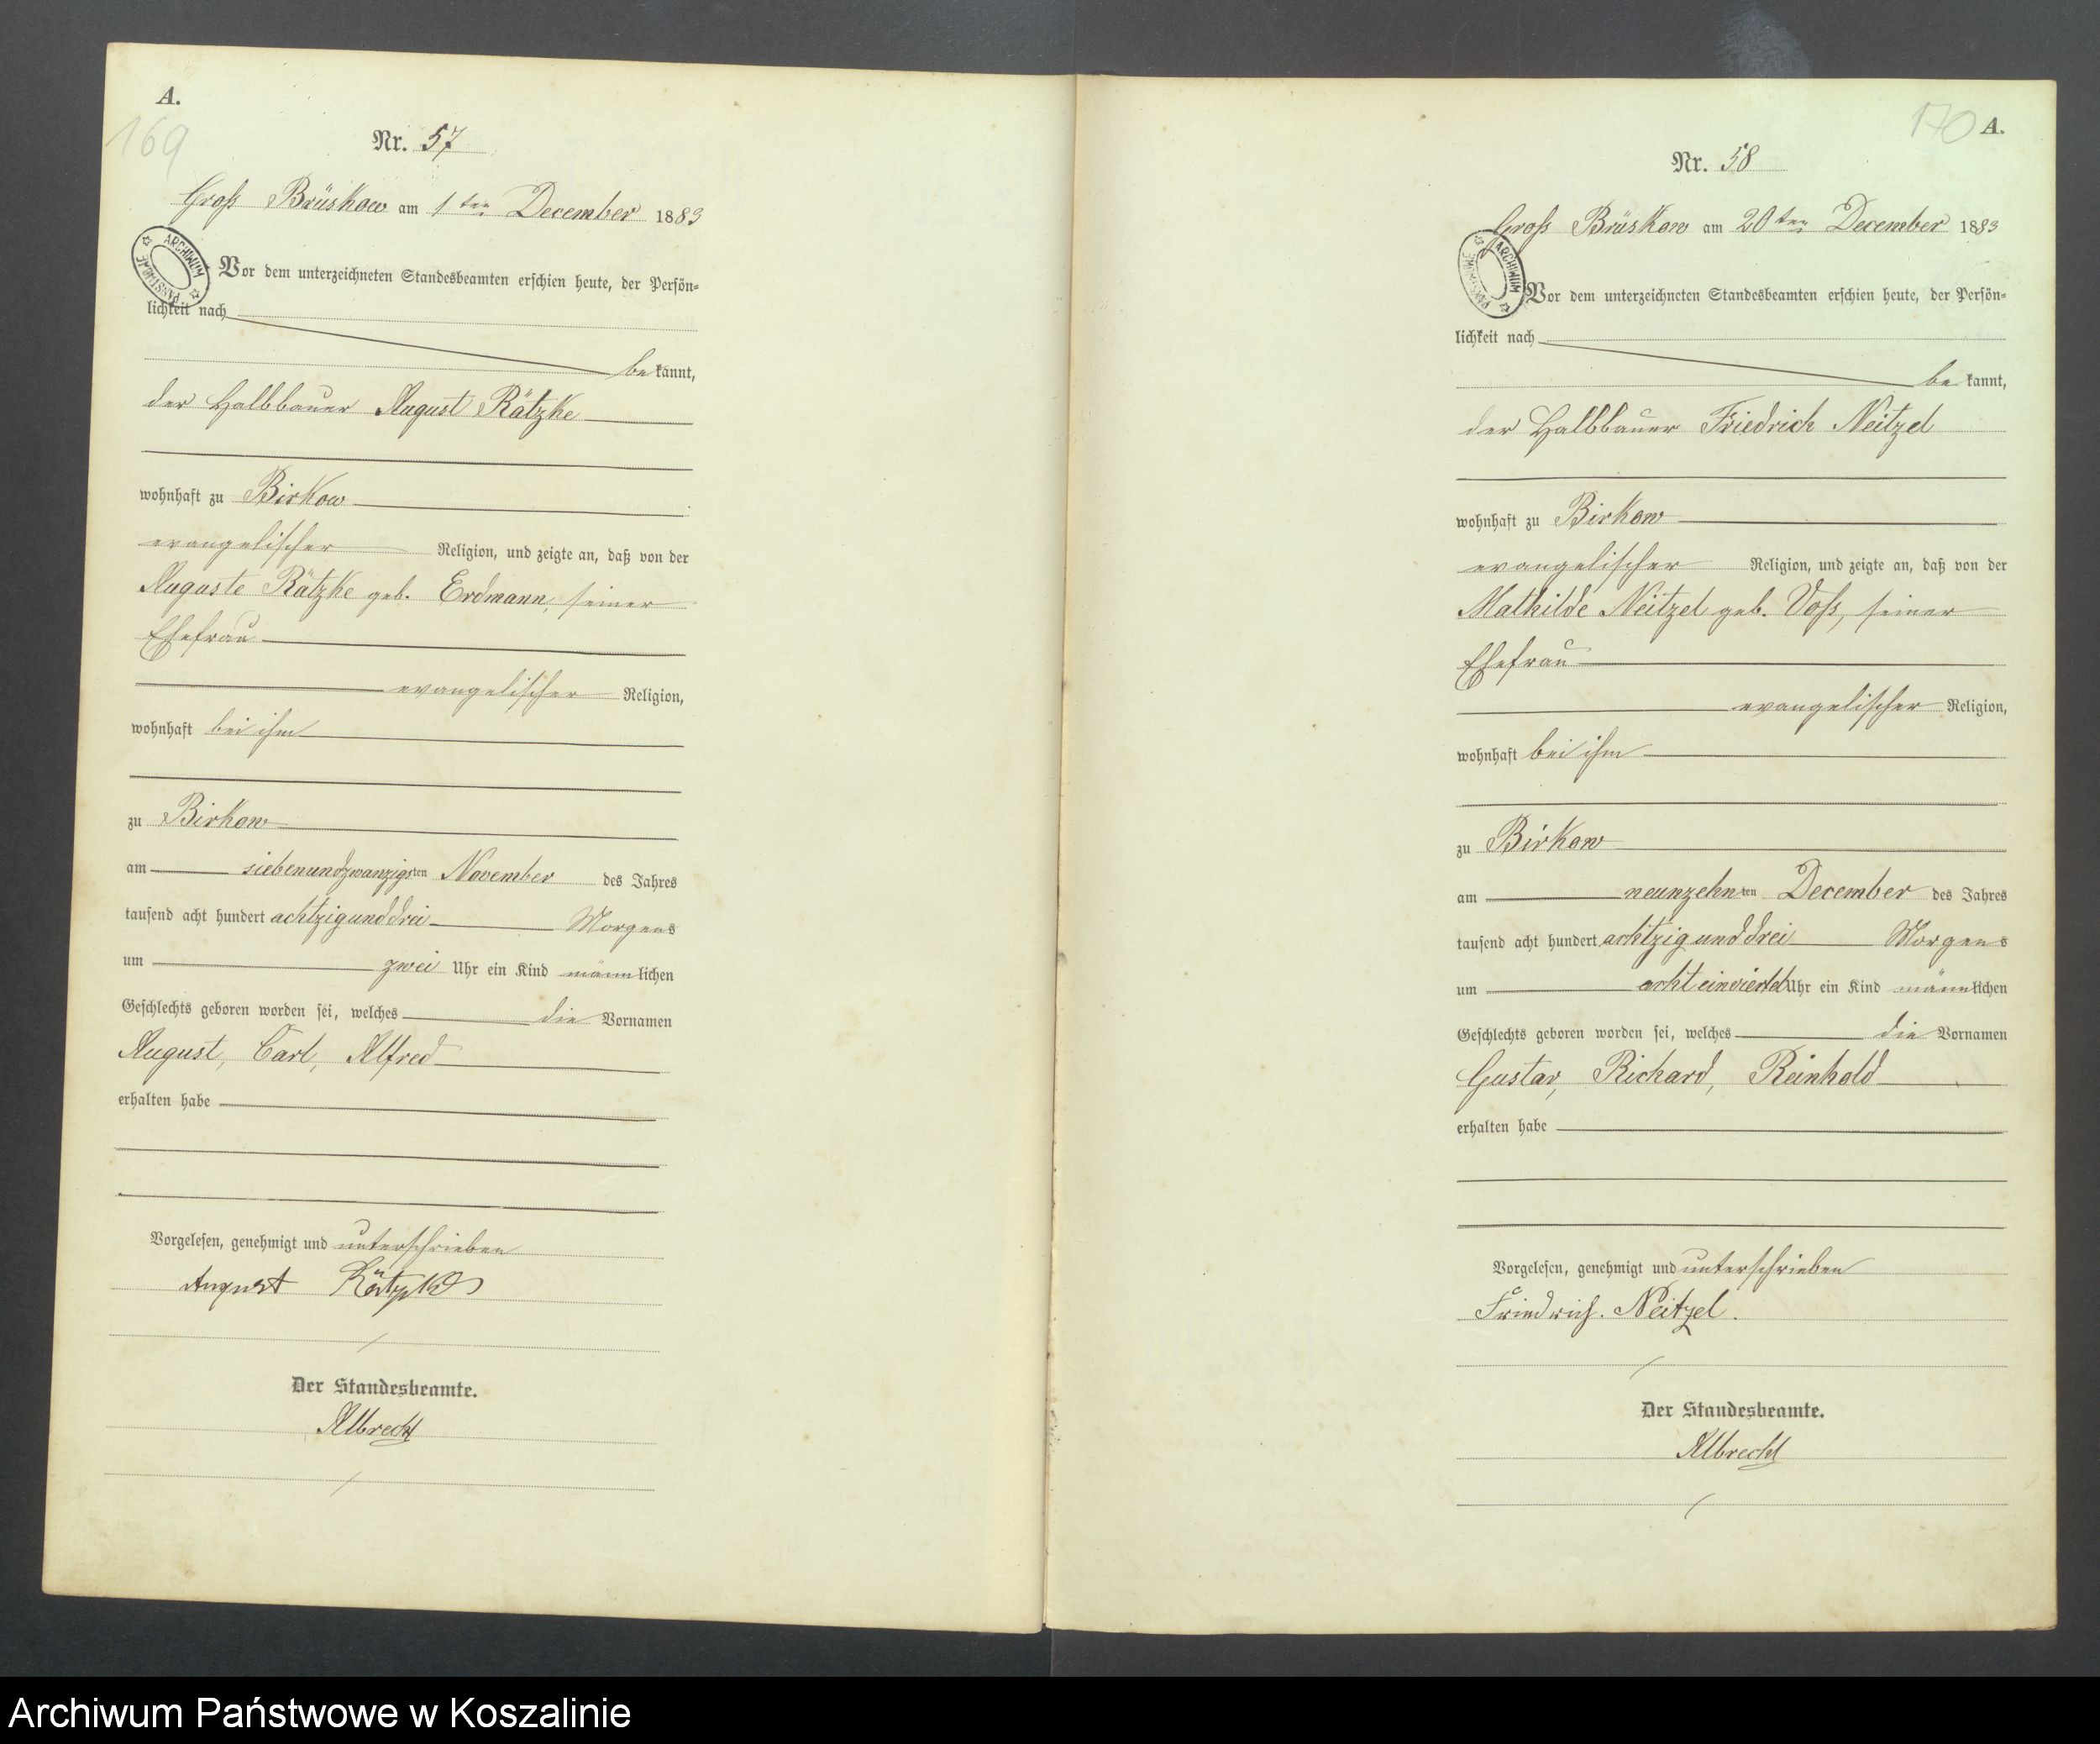 A.
169
Nr. 57
Groß Brüskow am 1ten December 1883
Vor dem unterzeichneten Standesbeamten erschien heute, der Persön-
lichkeit nach
be kannt,
der Halbbauer August Rätzke
wohnhaft zu Birkow
evangelischer Religion, und zeigte an, daß von der
Auguste Rätzke geb. Erdmann, seiner
Ehefrau
evangelischer Religion,
wohnhaft bei ihm
zu Birkow
am siebenundzwanzigsten November des Jahres
tausend acht hundert achtzig und drei Morgens
um zwei Uhr ein Kind männlichen
Geschlechts geboren worden sei, welches die Vornamen
August, Carl, Alfred
erhalten habe
Vorgelesen, genehmigt und unterschrieben
August Rätzke
Der Standesbeamte.
Albrecht
ARCHIWUM PAŃSTWOWE
170 A.
Nr. 58
Groß Brüskow am 20ten December 1883
Vor dem unterzeichneten Standesbeamten erschien heute, der Persön-
lichkeit nach
be kannt,
der Halbbauer Friedrich Neitzel
wohnhaft zu Birkow
evangelischer Religion, und zeigte an, daß von der
Mathilde Neitzel geb. Voß, seiner
Ehefrau
evangelischer Religion,
wohnhaft bei ihm
zu Birkow
am neunzehnten December des Jahres
tausend acht hundert achtzig und drei Morgens
um acht einviertel Uhr ein Kind männlichen
Geschlechts geboren worden sei, welches die Vornamen
Gustav, Richard, Reinhold
erhalten habe
Vorgelesen, genehmigt und unterschrieben
Friedrich. Neitzel.
Der Standesbeamte.
Albrecht
ARCHIWUM PAŃSTWOWE
Archiwum Państwowe w Koszalinie